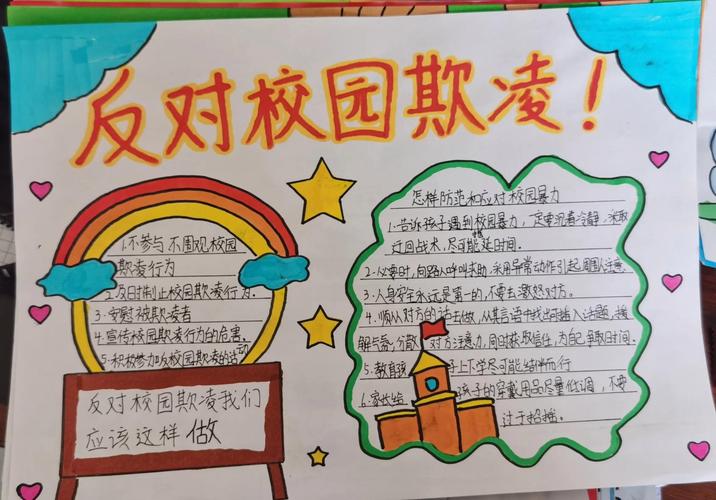 反对校园欺凌！
1.不参与 不围观校园
欺凌行为
2.及时制止校园欺凌行为.
3.安慰被欺凌者
4.宣传校园欺凌行为的危害.
5.积极参加反校园欺凌的活动
反对校园欺凌我们
应该这样做
怎样防范和应对校园暴力
1.告诉孩子遇到校园暴力，一定要沉着冷静.采取
迂回战术，尽可能拖延时间.
2.必要时，向路人呼叫求助，采用异常动作引起周围人注意.
3.人身安全永远是第一的，不要去激怒对方.
4.顺从对方的话去做，从其言语中找出可插入话题，缓
解气氛，分散对方注意力，同时获取信任，为自己争取时间.
5.教育孩子上下学尽可能结伴而行
6.家长给孩子的穿戴用品尽量低调，不要
过于招摇.